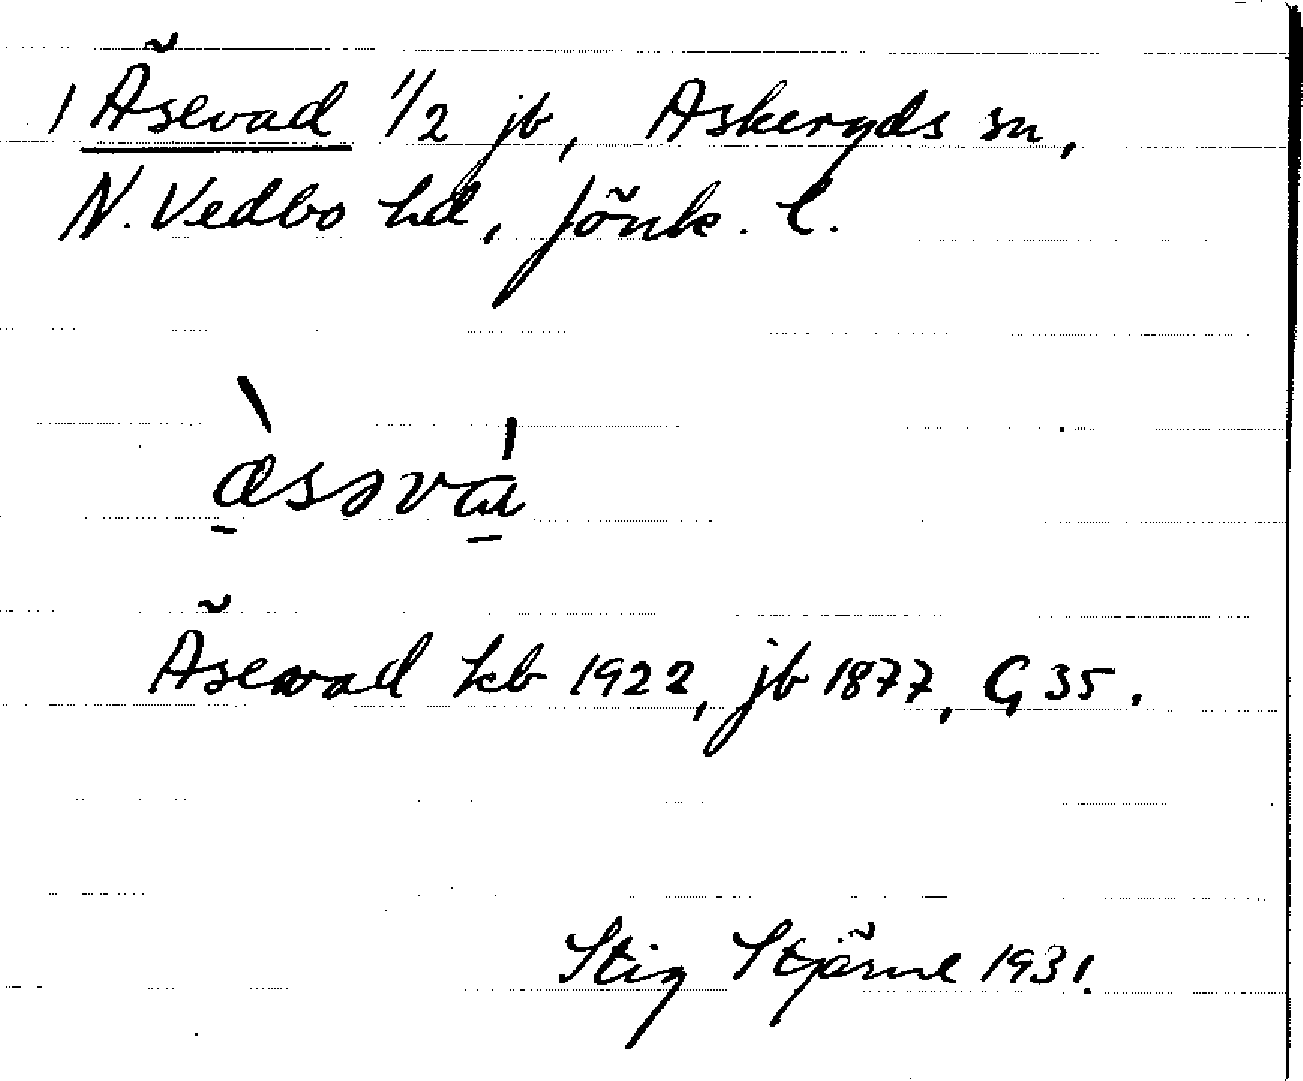 1 Äsevad 1/2 jb, Askeryds sn,
N. Vedbo hd, Jönk. l.
Äsevad kb 1922, jb 1877, G 35.
Stig Stjärne 1931.